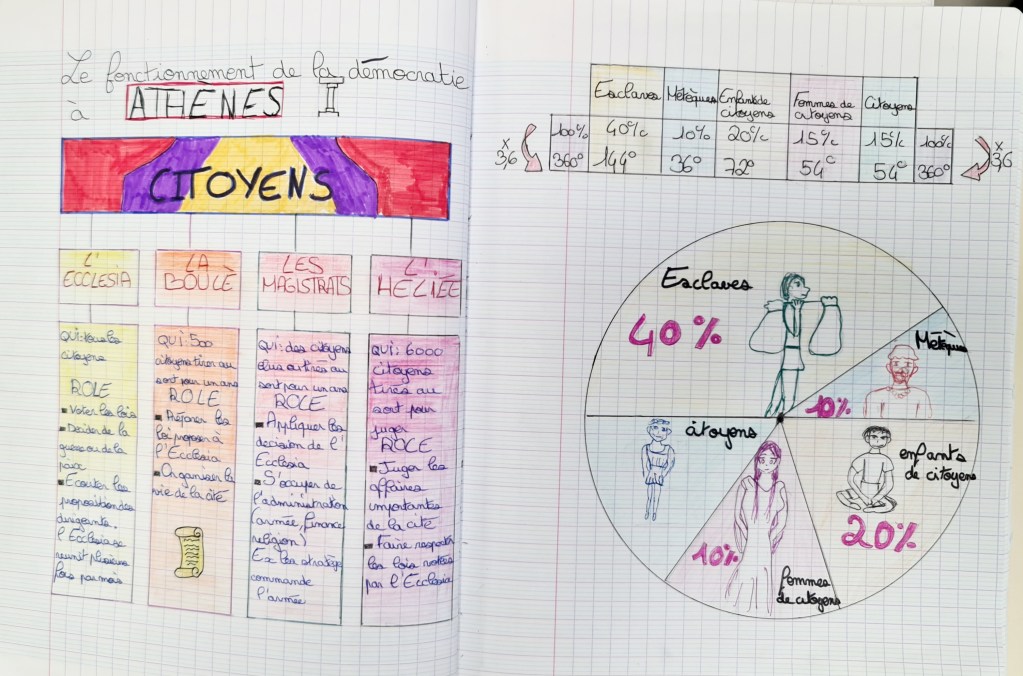 Le fonctionnement de la démocratie
à ATHÈNES
CITOYENS
L'
ECCLESIA
QUI: tous les
citoyens
ROLE
Voter les lois
Decider de la
guerre ou de la
paix
Ecouter les
proposition des
dirigeants.
l'Ecclesia se
reunit plusieurs
fois par mois
LA
BOULÈ
QUI: 500
citoyens tirer au
sort pour un an
ROLE
Préparer les
loi proposer à
l'Ecclesia
Organiser la
vie de la cité
LES
MAGISTRATS
QUI: des citoyens
élus ou tirés au
sort pour un an
ROLE
Appliquer les
décision de l'
Ecclesia
S'occuper de
l'administration
(armée, finance
religion)
Ex les stratège
commande
l'armée
L'
HELIÉE
QUI: 6000
citoyens
tirés au
sort pour
juger
ROLE
Juger les
affaires
importantes
de la cité
Faire respecter
les lois votées
par l'Ecclesia
Esclaves Métèques Enfants de citoyens Femmes de citoyens Citoyens
x 3,6 100% 40% 10% 20% 15% 15% 100% x 3,6
360° 144° 36° 72° 54° 54° 360°
Esclaves
40%
Métèques
10%
citoyens
enfants
de citoyens
20%
10%
femmes
de citoyens